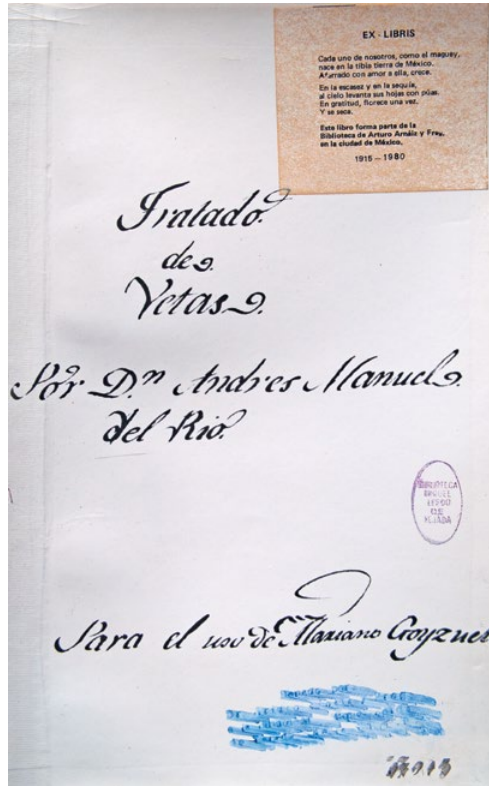 EX - LIBRIS
Cada uno de nosotros, como el maguey,
nace en la tibia tierra de México.
Aferrado con amor a ella, crece.
En la escasez y en la sequía,
al cielo levanta sus hojas con púas.
En gratitud, florece una vez.
Y se seca.
Este libro forma parte de la
Biblioteca de Arturo Arnáiz y Freg,
en la ciudad de México.
1915 – 1980
Tratado
de
Vetas
Por D.n Andres Manuel
del Rio
BIBLIOTECA
MIGUEL
LERDO
DE
TEJADA
Para el uso de Mariano